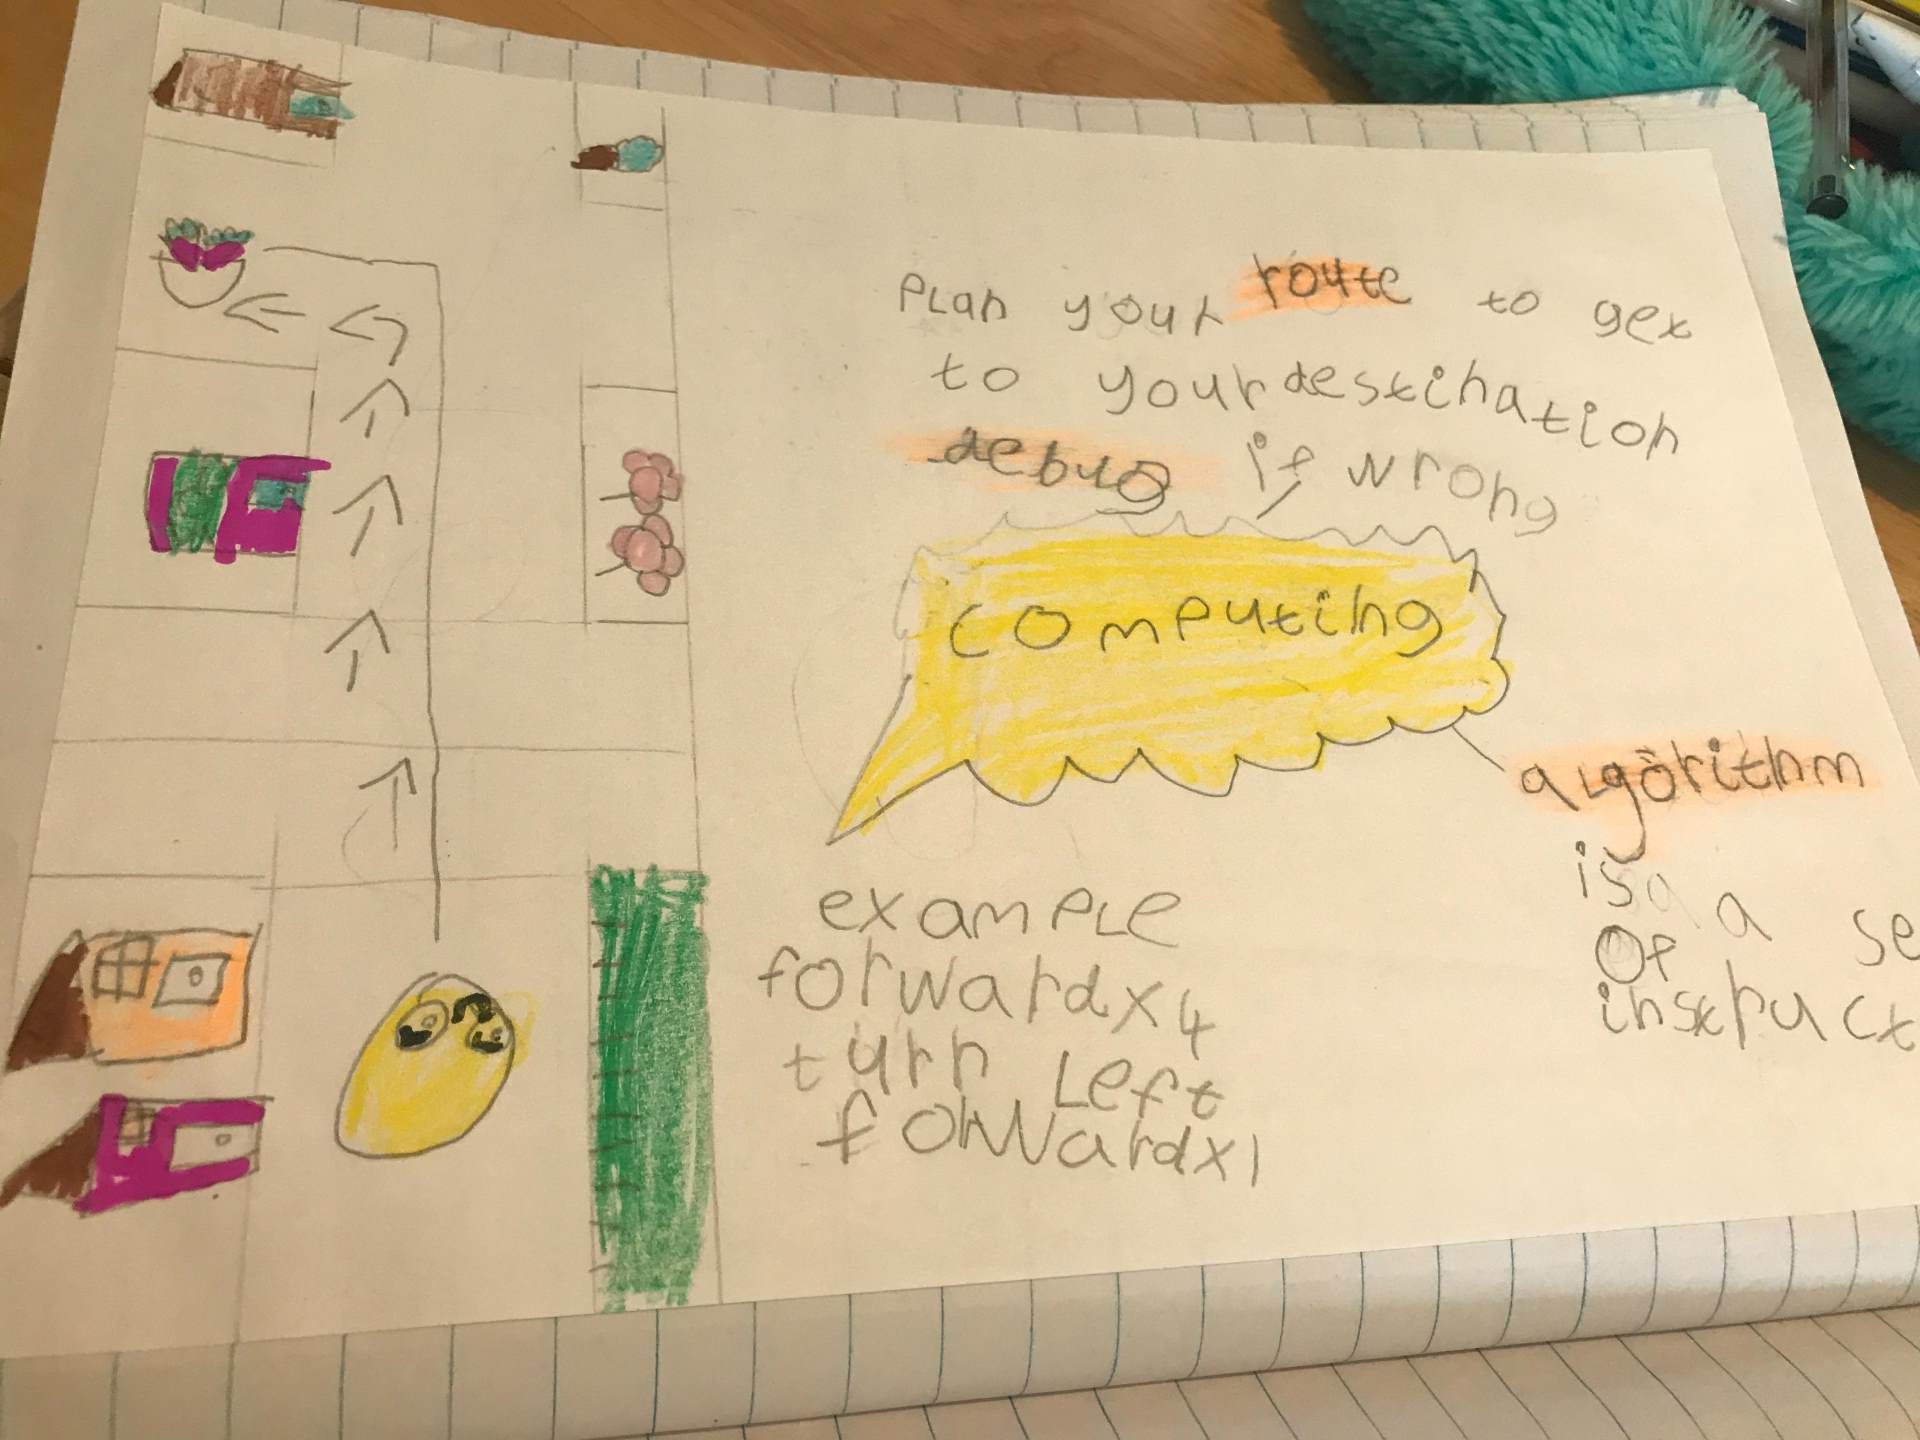 Plan your route to get
to your destination
debug if wrong
computing
algorithm
is a se
of
instruct
example
forwardx4
turn left
forwardx1